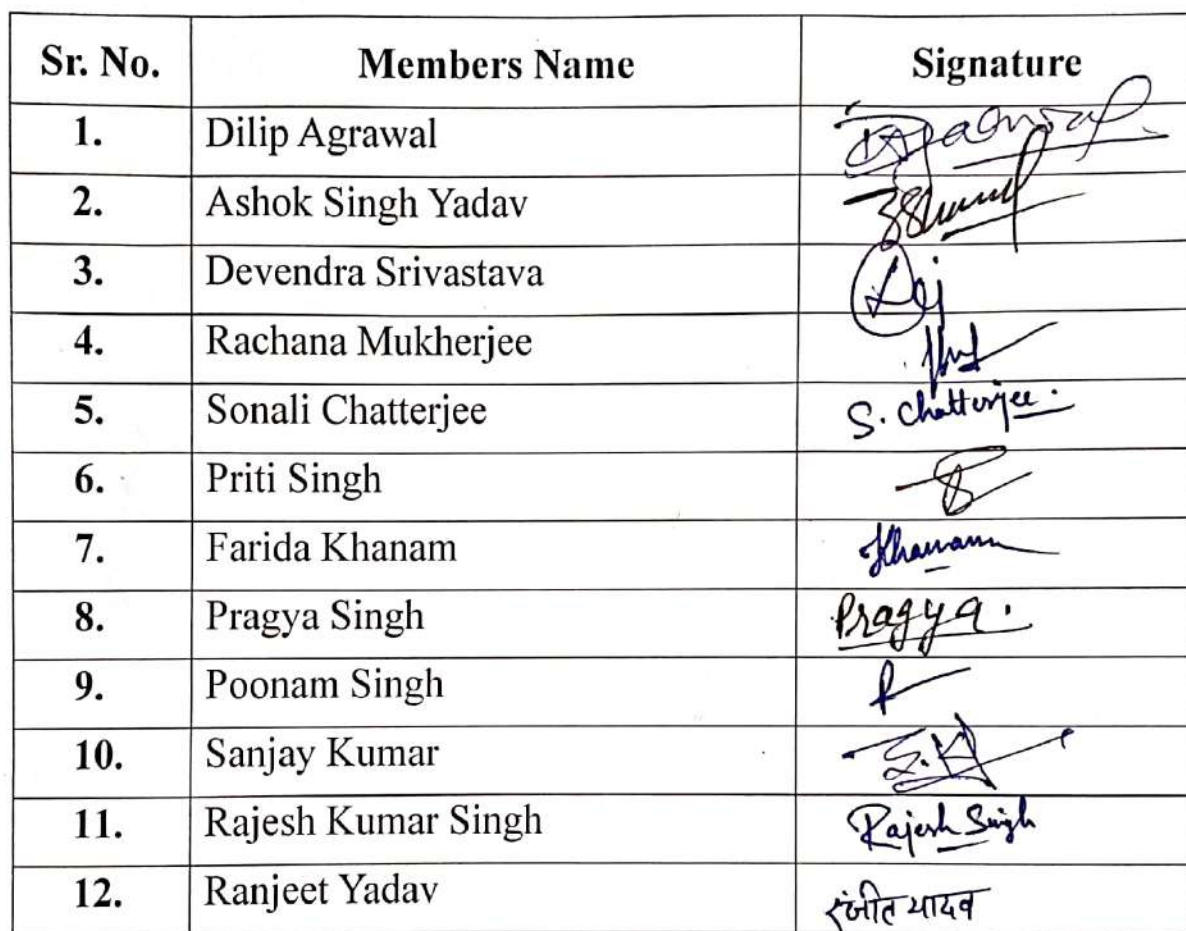 Sr. No. Members Name Signature
1. Dilip Agrawal
2. Ashok Singh Yadav
3. Devendra Srivastava
4. Rachana Mukherjee
5. Sonali Chatterjee S. Chatterjee.
6. Priti Singh
7. Farida Khanam Khanam
8. Pragya Singh Pragya.
9. Poonam Singh
10. Sanjay Kumar S.K
11. Rajesh Kumar Singh Rajesh Singh
12. Ranjeet Yadav रंजीत यादव